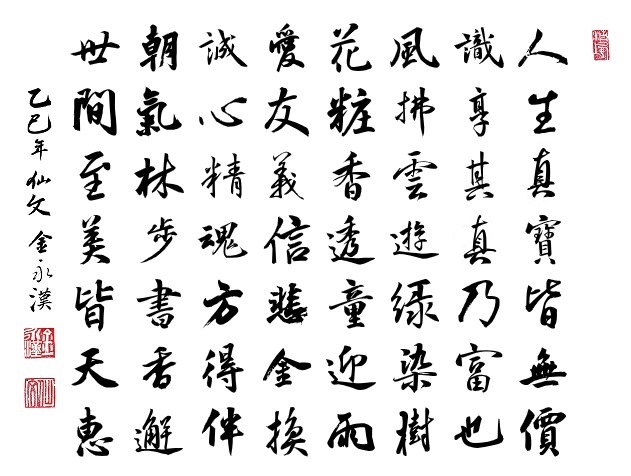 人生真寶皆無價
識享其真乃富也
風拂雲遊綠染樹
花粧香透童迎雨
愛友義信悲金換
誠心精魂方得伴
朝氣林步書香邂
世間至美皆天惠
乙巳年 仙文 金永漢